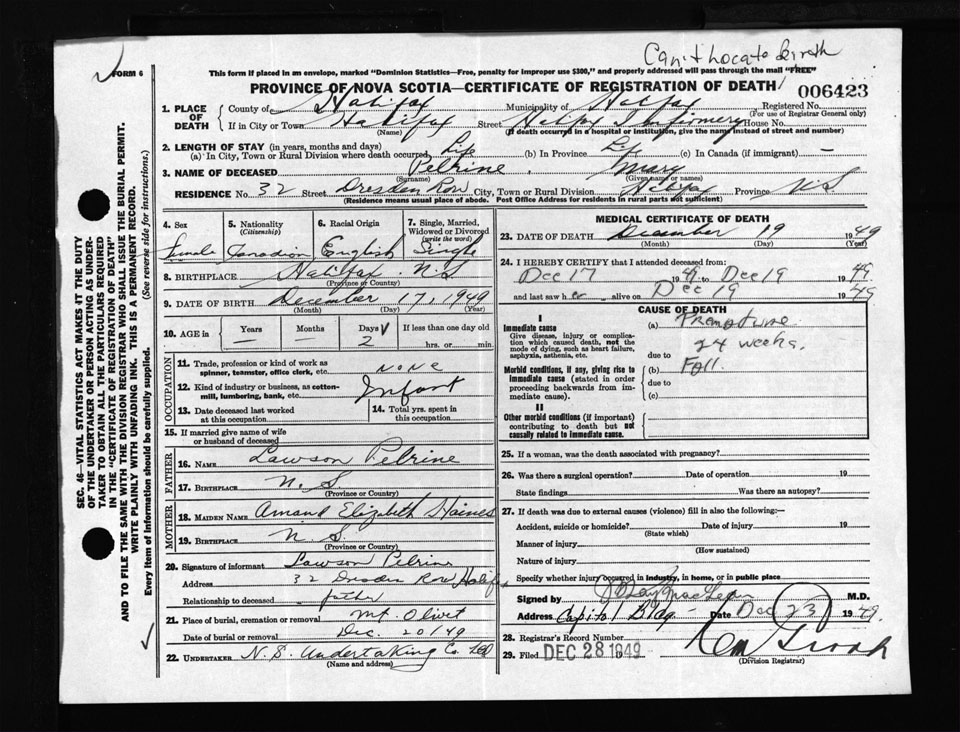 Can't Locate birth
FORM 6
This form if placed in an envelope, marked "Dominion Statistics—Free, penalty for improper use $300," and properly addressed will pass through the mail "FREE"
PROVINCE OF NOVA SCOTIA—CERTIFICATE OF REGISTRATION OF DEATH
006423
1. PLACE OF DEATH
County of Halifax Municipality of Halifax Registered No.
(For use of Registrar General only)
If in City or Town Halifax Street Halifax Infirmery House No.
(Name) (If death occurred in a hospital or institution, give the name instead of street and number)
2. LENGTH OF STAY (in years, months and days)
(a) In City, Town or Rural Division where death occurred Life (b) In Province Life (c) In Canada (if immigrant) —
3. NAME OF DECEASED Pelrine, Mary
(Surname) (Given name or names)
RESIDENCE No. 32 Street Dresden Row City, Town or Rural Division Halifax Province N.S
(Residence means usual place of abode. Post Office Address for residents in rural parts not sufficient)
4. Sex
female
5. Nationality
(Citizenship)
Canadian
6. Racial Origin
English
7. Single, Married,
Widowed or Divorced
(write the word)
Single
8. BIRTHPLACE Halifax N.S
(Province or Country)
9. DATE OF BIRTH December 17, 1949
(Month) (Day) (Year)
10. AGE in
Years
—
Months
—
Days
2
If less than one day old
hrs. or min.
OCCUPATION
11. Trade, profession or kind of work as
spinner, teamster, office clerk, etc. none
12. Kind of industry or business, as cotton-
mill, lumbering, bank, etc. Infant
13. Date deceased last worked
at this occupation
14. Total yrs. spent in
this occupation
15. If married give name of wife
or husband of deceased
FATHER
16. NAME Lawson Pelrine
17. BIRTHPLACE N.S
(Province or Country)
MOTHER
18. MAIDEN NAME Elizabeth Haines
19. BIRTHPLACE N.S.
(Province or Country)
20. Signature of informant Lawson Pelrine
Address 32 Dresden Row Halifax
Relationship to deceased father
21. Place of burial, cremation or removal Mt. Olivet
Date of burial or removal Dec. 20/49
22. UNDERTAKER N.S. Undertaking Co. Ltd
(Name and address)
MEDICAL CERTIFICATE OF DEATH
23. DATE OF DEATH December 19 1949
(Month) (Day) (Year)
24. I HEREBY CERTIFY that I attended deceased from:
Dec 17 1949 to Dec 19 1949
and last saw her alive on Dec 19 1949
CAUSE OF DEATH
I
Immediate cause
Give disease, injury or complica-
tion which caused death, not the
mode of dying, such as heart failure,
asphyxia, asthenia, etc.
(a) Premature
24 weeks.
due to
Morbid conditions, if any, giving rise to
immediate cause (stated in order
proceeding backwards from im-
mediate cause).
(b) Fall.
due to
(c)
II
Other morbid conditions (if important)
contributing to death but not
causally related to immediate cause.
25. If a woman, was the death associated with pregnancy?
26. Was there a surgical operation? Date of operation 19
State findings Was there an autopsy?
27. If death was due to external causes (violence) fill in also the following:—
Accident, suicide or homicide? Date of injury 19
(State which)
Manner of injury
(How sustained)
Nature of injury
Specify whether injury occurred in industry, in home, or in public place
Signed by M.D.
Address Capitol Bldg. Date Dec 23 1949
28. Registrar's Record Number
29. Filed DEC 28 1949 19
(Division Registrar)
SEC. 46—VITAL STATISTICS ACT MAKES IT THE DUTY
OF THE UNDERTAKER OR PERSON ACTING AS UNDER-
TAKER TO OBTAIN ALL THE PARTICULARS REQUIRED
IN THE "CERTIFICATE OF REGISTRATION OF DEATH"
AND TO FILE THE SAME WITH THE DIVISION REGISTRAR WHO SHALL ISSUE THE BURIAL PERMIT.
WRITE PLAINLY WITH UNFADING INK. THIS IS A PERMANENT RECORD.
Every item of information should be carefully supplied. (See reverse side for instructions.)